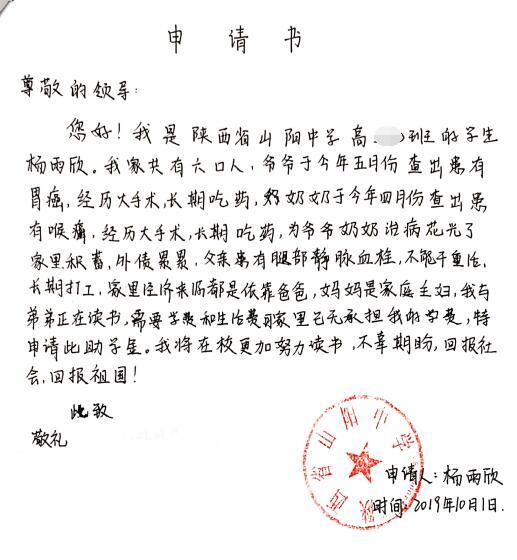 申请书
尊敬的领导:
您好!我是陕西省山阳中学高 班的学生
杨雨欣。我家共有六口人,爷爷于今年五月份查出患有
胃癌,经历大手术,长期吃药,奶奶于今年四月份查出患
有喉癌,经历大手术,长期吃药,为爷爷奶奶治病花光了
家里积蓄,外债累累,父亲患有腿部静脉血栓,不能干重活,
长期打工,家里经济来源都是依靠爸爸,妈妈是家庭主妇,我与
弟弟正在读书,需要学费和生活费,家里已无承担我的学费,特
申请此助学金。我将在校更加努力读书,不辜期盼,回报社
会,回报祖国!
此致
敬礼
陕西省山阳中学
申请人:杨雨欣
时间:2019年10月1日.